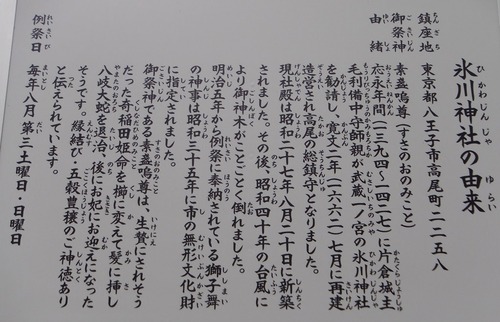 氷川神社の由来
鎮座地 東京都八王子市高尾町二二五八
御祭神 素盞嗚尊(すさのおのみこと)
由緒 応永年間(一三九四〜一四二七)に片倉城主
毛利備中守師親が武蔵一ノ宮の氷川神社
を勧請し、寛文二年(一六六二)七月に再建
造営され高尾の総鎮守となりました。
現社殿は昭和二十七年八月二十日に新築
されました。その後、昭和四十年の台風に
より御神木がことごとく倒れました。
明治五年から例祭に奉納されている獅子舞
の神事は昭和三十五年に市の無形文化財
に指定されました。
御祭神である素盞嗚尊は、生贄にされそう
だった奇稲田姫命を櫛に変えて髪に挿し
八岐大蛇を退治、後にお妃にお迎えになった
そうです。縁結び・五穀豊穣のご神徳あり
と伝えられています。
例祭日 毎年八月 第三土曜日・日曜日